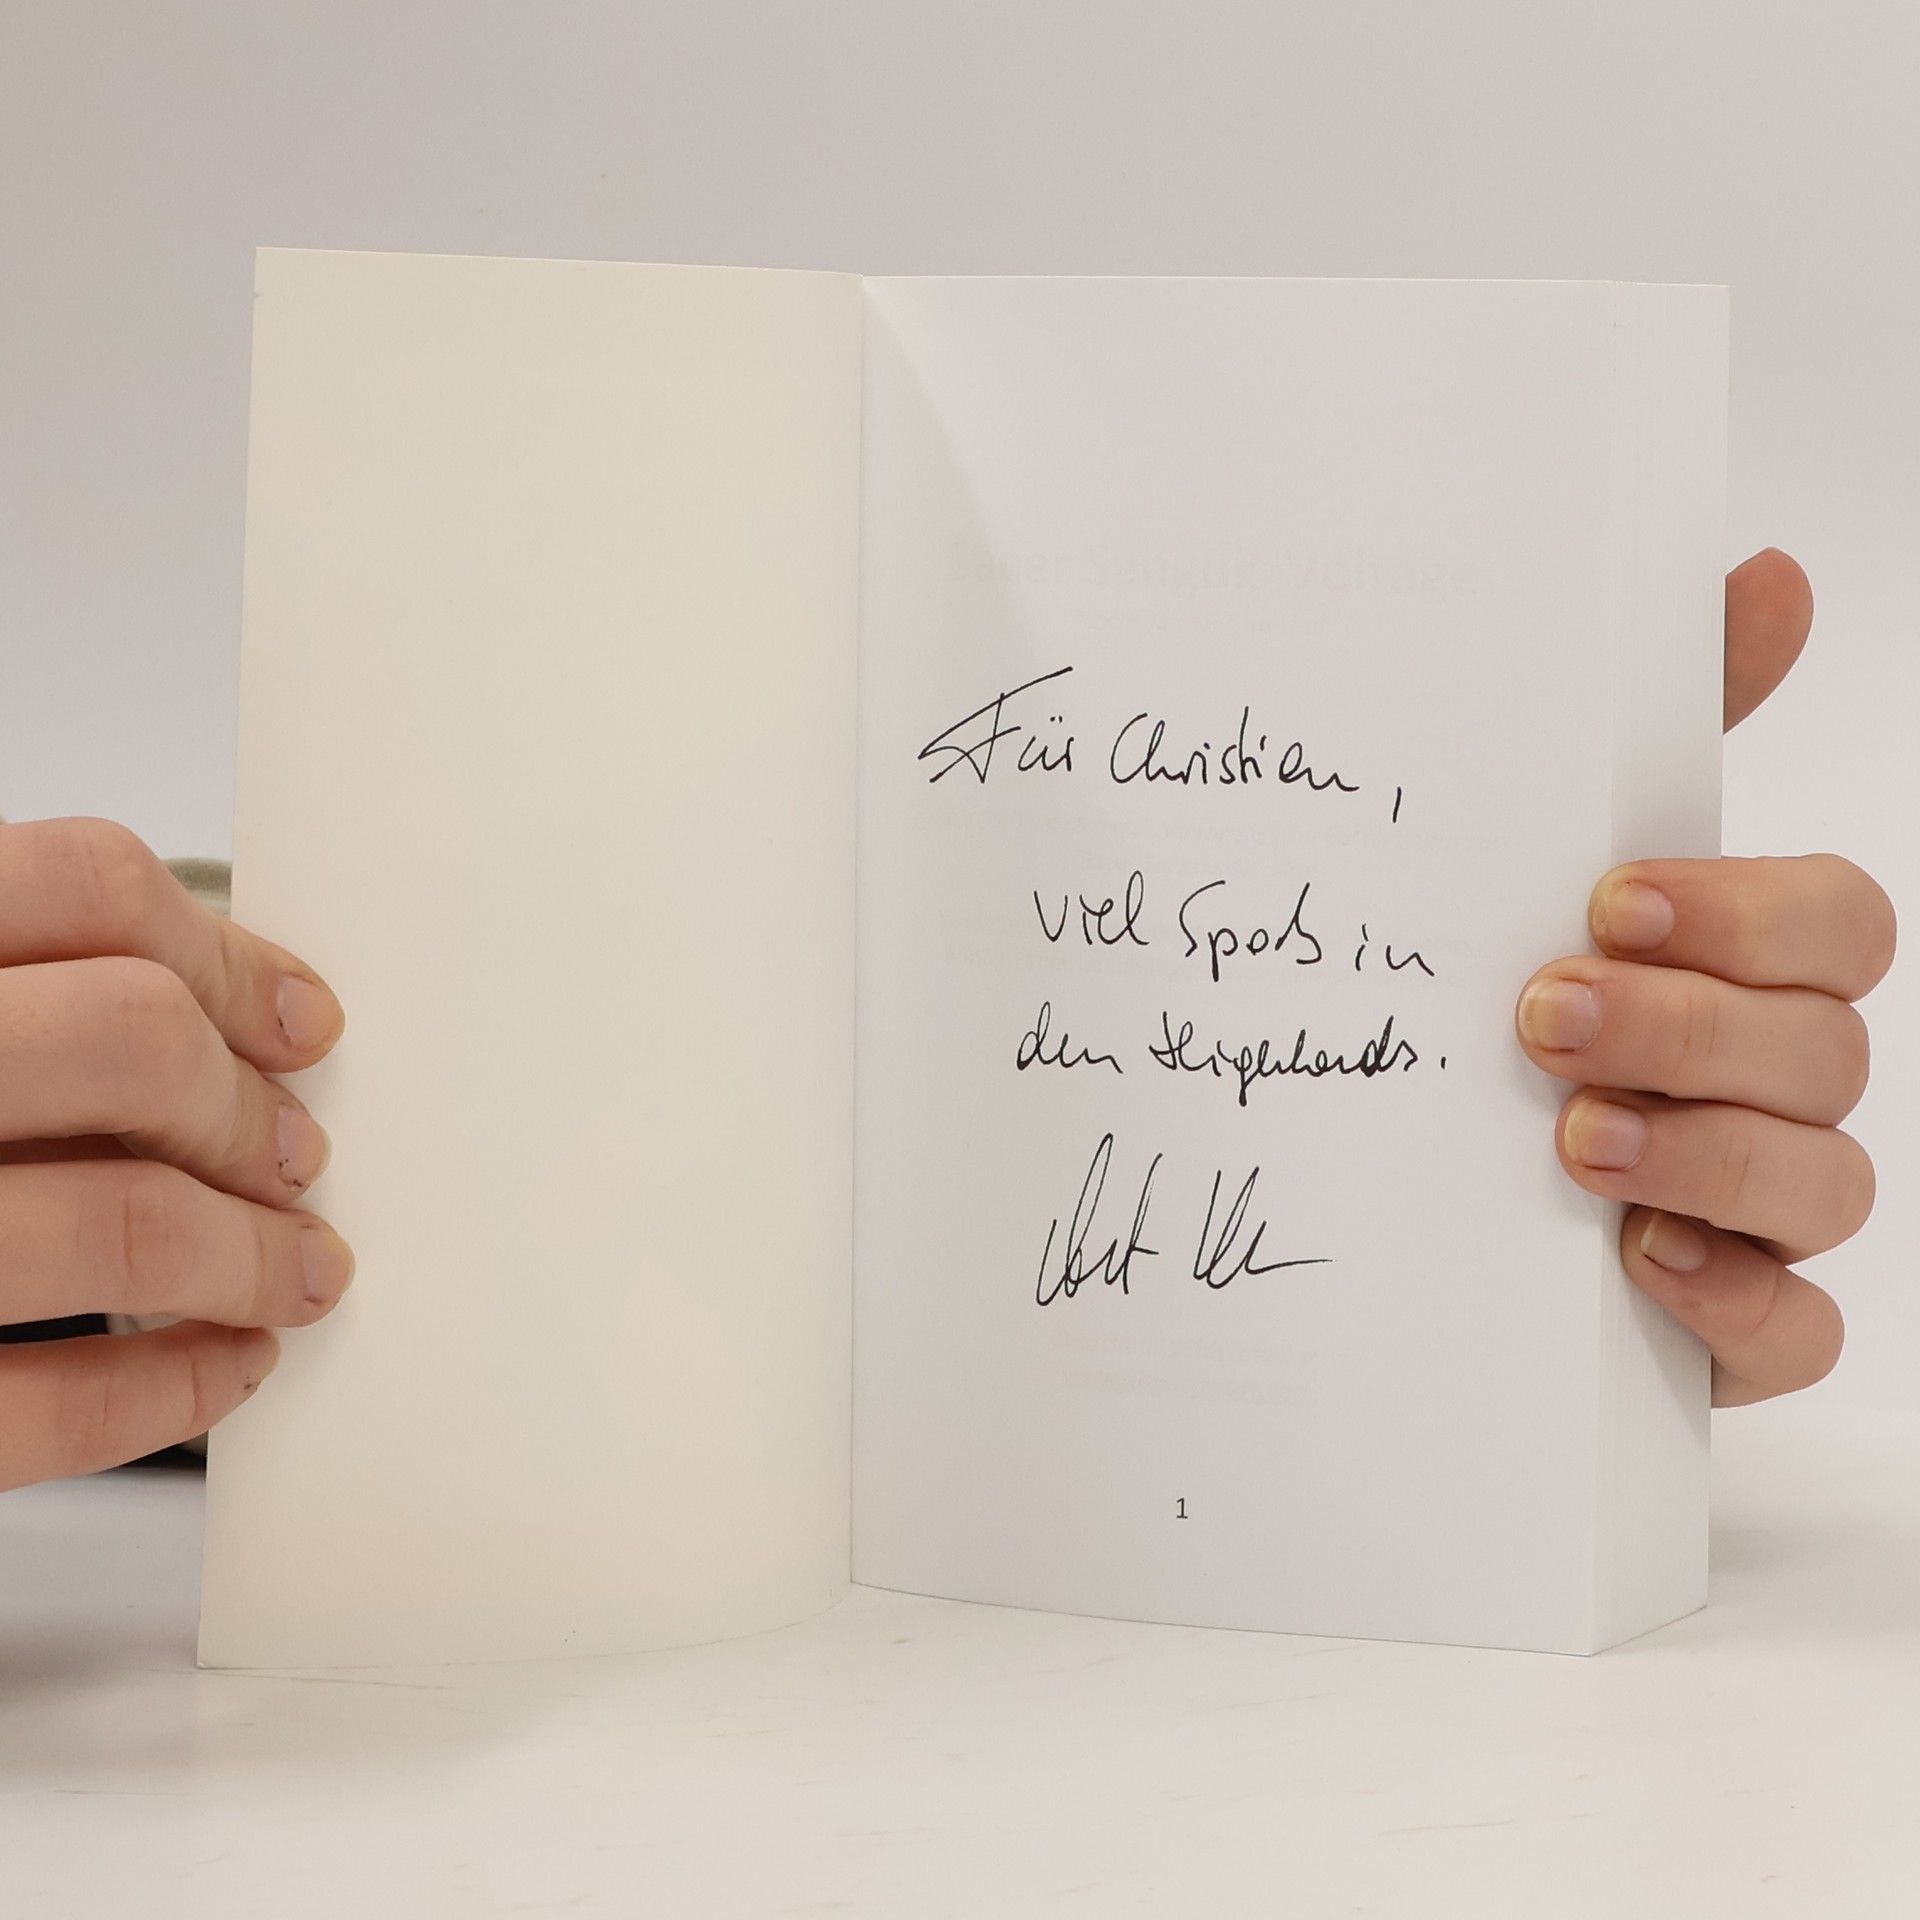 Für Christian,
viel Spaß in
den Highlands.
1